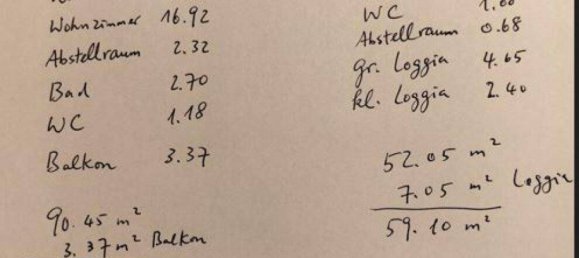 Wohnzimmer 16.92
Abstellraum 2.32
Bad 2.70
WC 1.18
Balkon 3.37
90.45 m²
3.37m² Balkon
WC
Abstellraum 0.68
gr. Loggia 4.65
kl. Loggia 2.40
52.05 m²
7.05 m² Loggia
59.10 m²